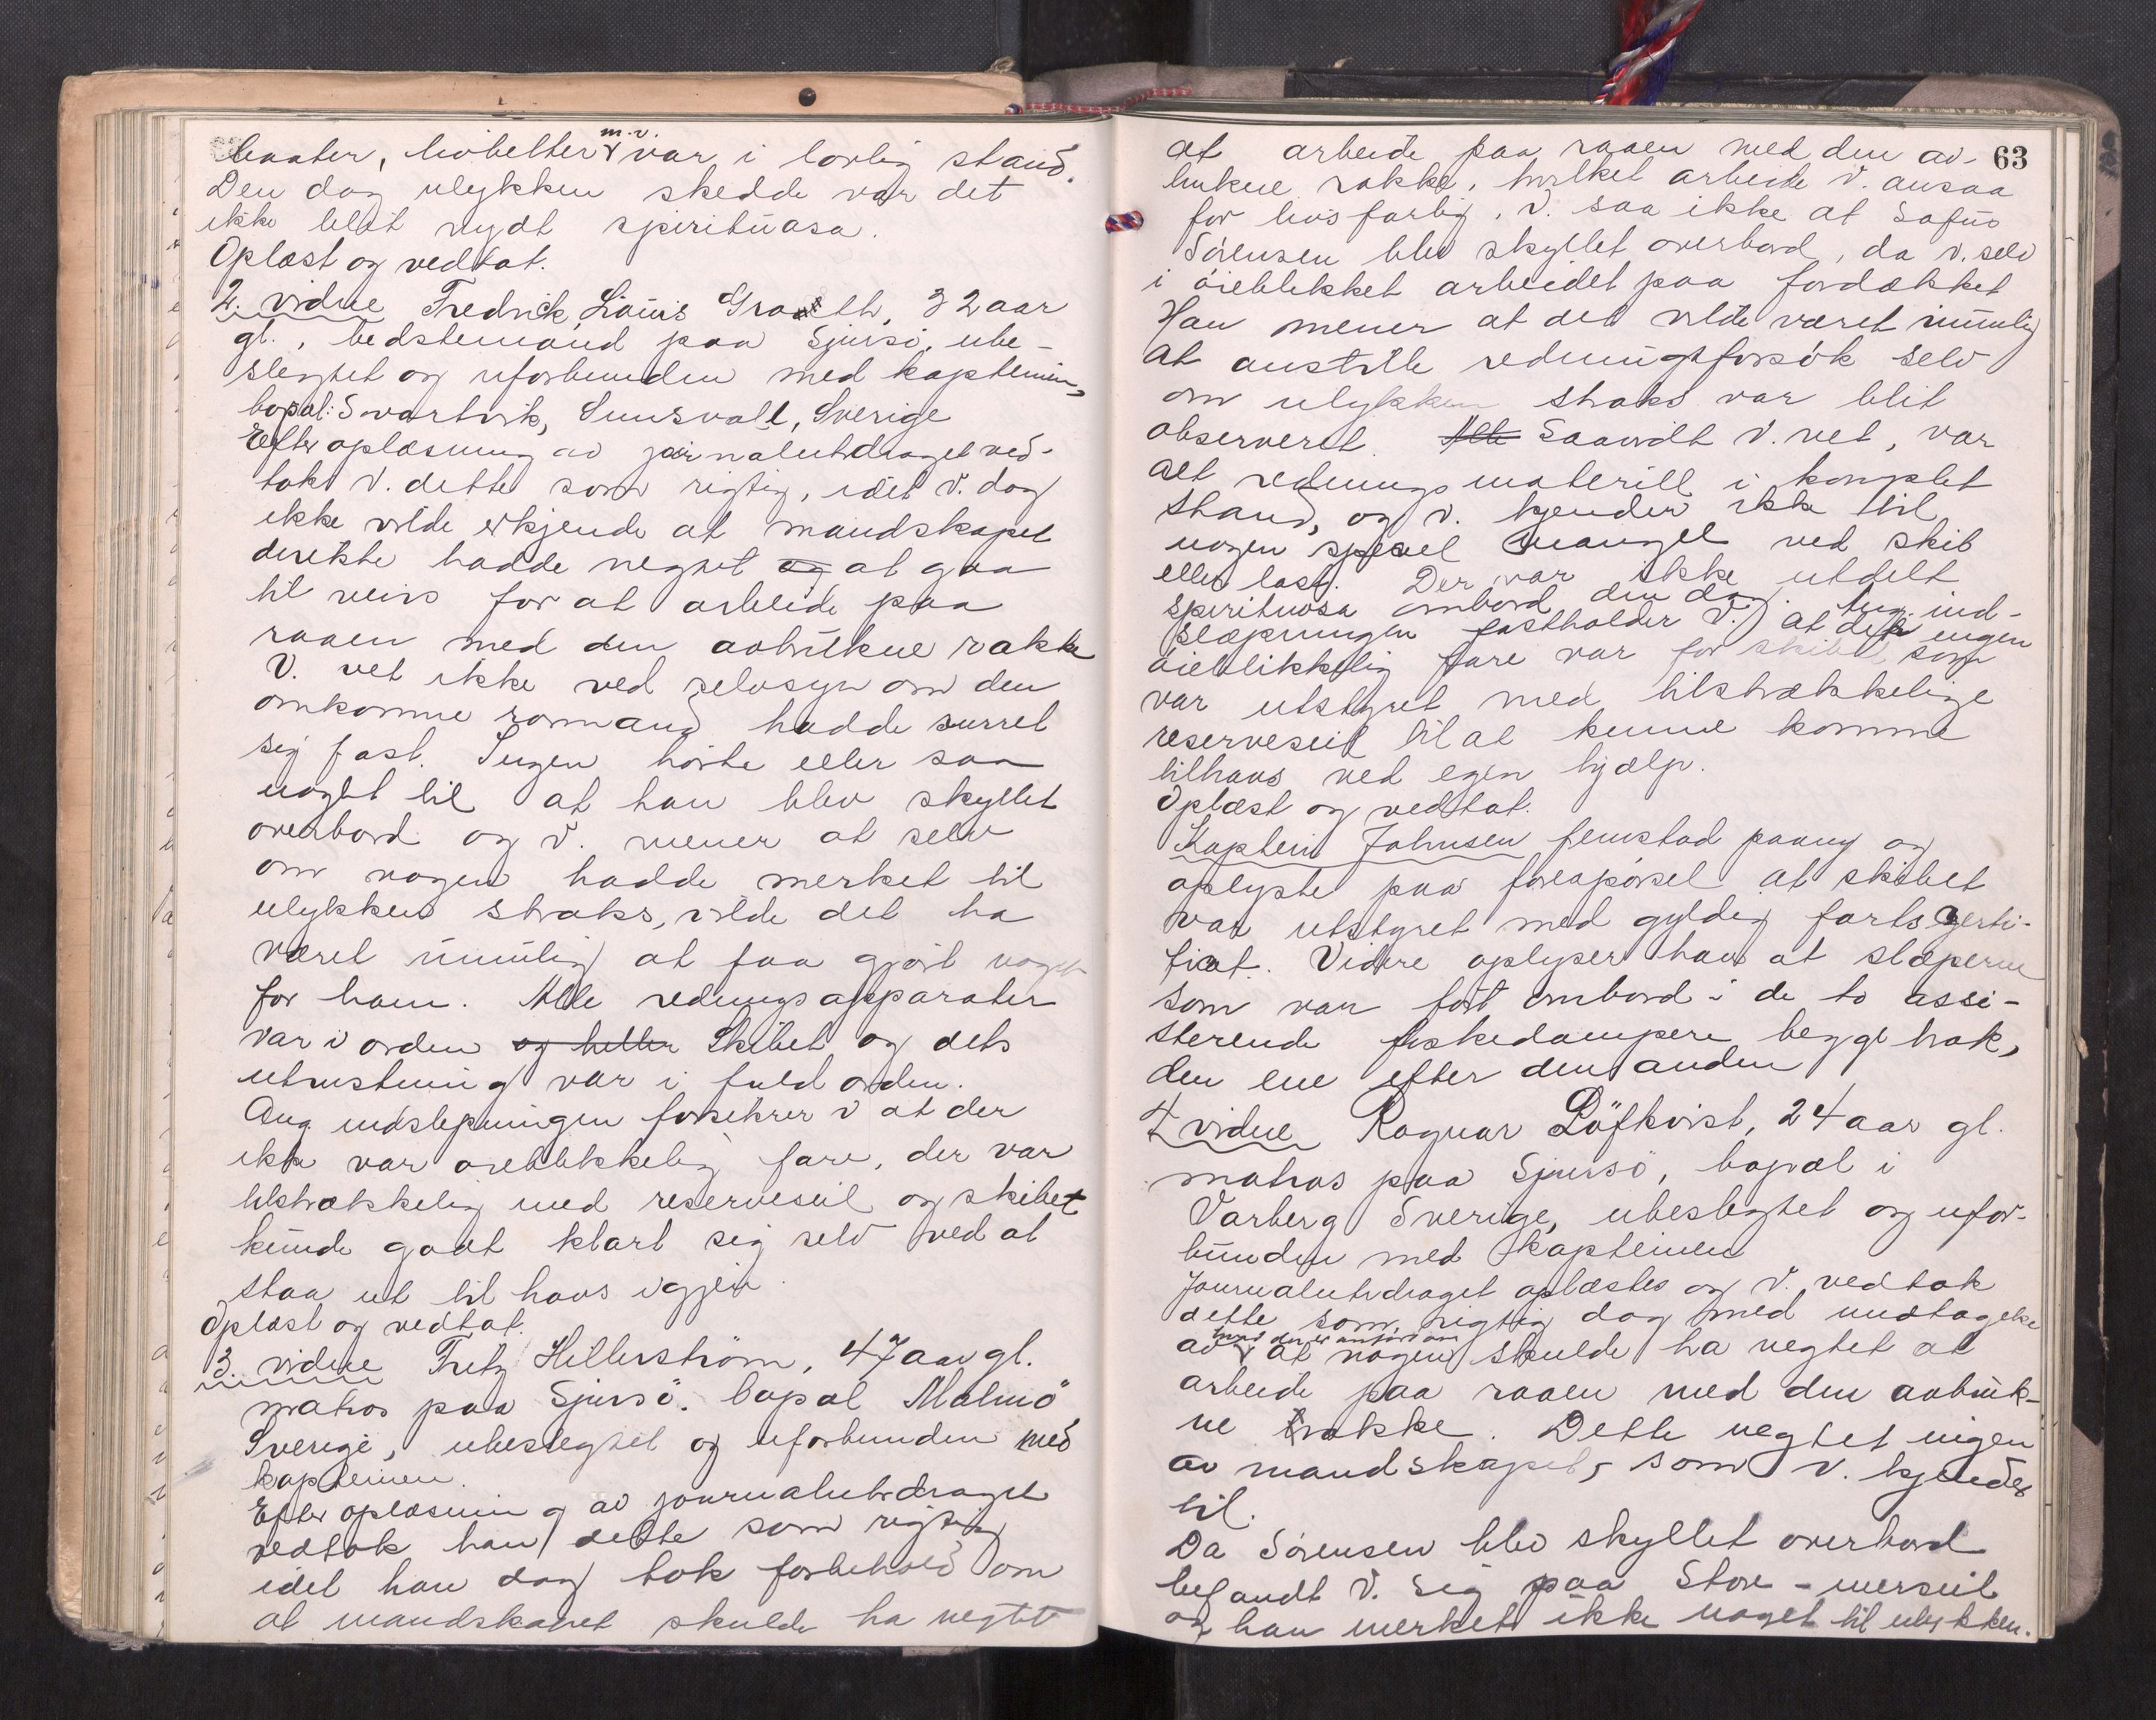 m.v.
baater, livbelter var i lovlig stand.
Den dag ulykken skedde var det
ikke blit nydt spirituøsa.
Oplæst og vedtat.
2. vidne Fredrick Louis Graath, 32 aar
gl., bedstemand paa Sjursö, ube-
slegtet og uforbunden med kapteinen,
bopæl: Svartvik, Sunsvall, Sverige
Efter oplæsning av jurnalutdraget ved-
tok V. dette som rigtig, idet V. dog
ikke vilde erkjende at mandskapet
direkte hadde negtet og at gaa
til veirs for at arbeide paa
raaen med den avbrukne rakke
V. vet ikke ved selvsyn om den
omkomne rormand hadde surret
sig fast. Ingen hörte eller saa
noget til at han blev skyllet
overbord og V. mener at selv
om nogen hadde merket til
ulykken straks, vilde det ha
været umulig at faa gjort noget
for ham. Alle redningsapparater
var i orden og heller Skibet og dets
utrustning var i fuld orden.
Ang indslepningen forsikrer v at der
ikke var öieblikkelig fare, der var
tilstrækkelig med reserveseil og skibet
kunde godt klart sig selv ved at
staa ut til havs igjen.
Oplæst og vedtat.
3. vidne Fritz Hellerström, 47 aar gl.
matros paa Sjursö. bopæl Malmö
Sverige, ubeslegtet og uforbunden med
kapteinen.
Efter oplæsning av journalutdraget
vedtok han dette som rigtig
idet han dog tok forbehold om
at mandskapet skulde ha negtet
63
at arbeide paa raaen med den av-
brukne rakke, hvilket arbeide V. ansaa
for livsfarlig. V. saa ikke at Sofus
Sörensen blev skyllet overbord, da v. selv
i öieblikket arbeidet paa fordækket
Han mener at det vilde været umulig
at anstille redningsforsök selv
om ulykken straks var blit
observeret. Alt Saavidt V. vet, var
alt redningsmateriell i komplet
stand, og v. kjender ikke til
nogen speciel mangel ved skib
eller last. Der var ikke utdelt
spirituosa ombord den dag. Ang. ind-
slæpningen fastholder V. at der ingen
öieblikkelig fare var for skibet som
var utstyret med tilstrækkelige
reserveseil til at kunne komme
tilhavs ved egen hjælp.
Oplæst og vedtat.
Kaptein Johnsen fremstod paany og
oplyste paa forespörsel at skibet
var utstyret med gyldig fartscerti-
fikat. Videre oplyser han at slæperne
som var fört ombord i de to assi-
sterende fiskedampere begge brak,
den ene efter den anden
4 vidne Ragnar Löfkvist, 24 aar gl.
matros paa Sjursö, bopæl i
Varberg Sverige, ubeslegtet og ufor-
bunden med kapteinen
Journalutdraget oplæstes og V. vedtok
dette som rigtig dog med undtagelse
hvad der er anfört om
av at nogen skulde ha negtet at
arbeide paa raaen med den avbruk-
ne rakke. Dette negtet ingen
av mandskapet, som V. kjender
til.
Da Sörensen blev skyllet overbord
befandt V. sig paa Store-merseil
og han merket ikke noget til ulykken.